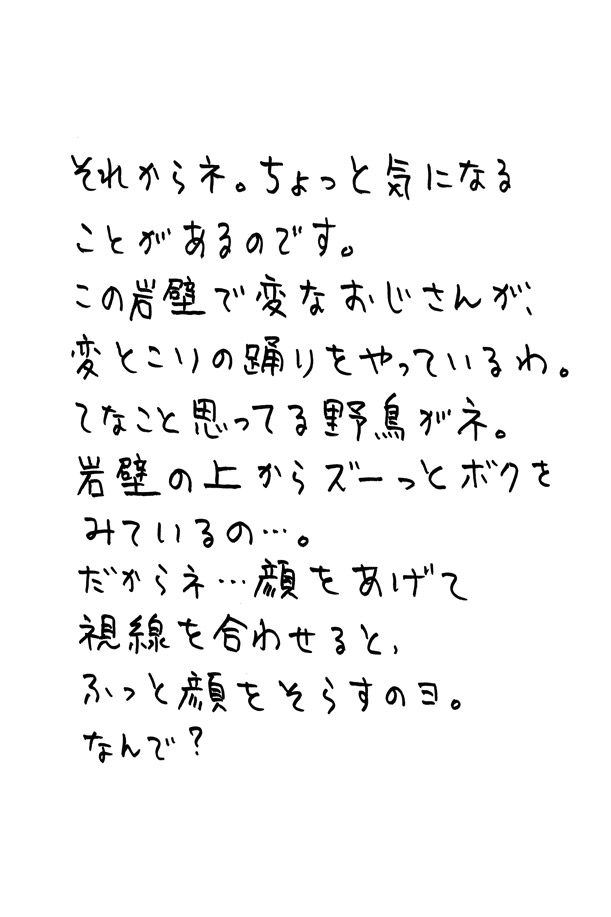 それからネ。ちょっと気になる
ことがあるのです。
この岩壁で変なおじさんが、
変とこりの踊りをやっているわ。
てなこと思ってる野鳥がネ。
岩壁の上からズーっとボクを
みているの…。
だからネ…顔をあげて
視線を合わせると、
ふっと顔をそらすのヨ。
なんで?